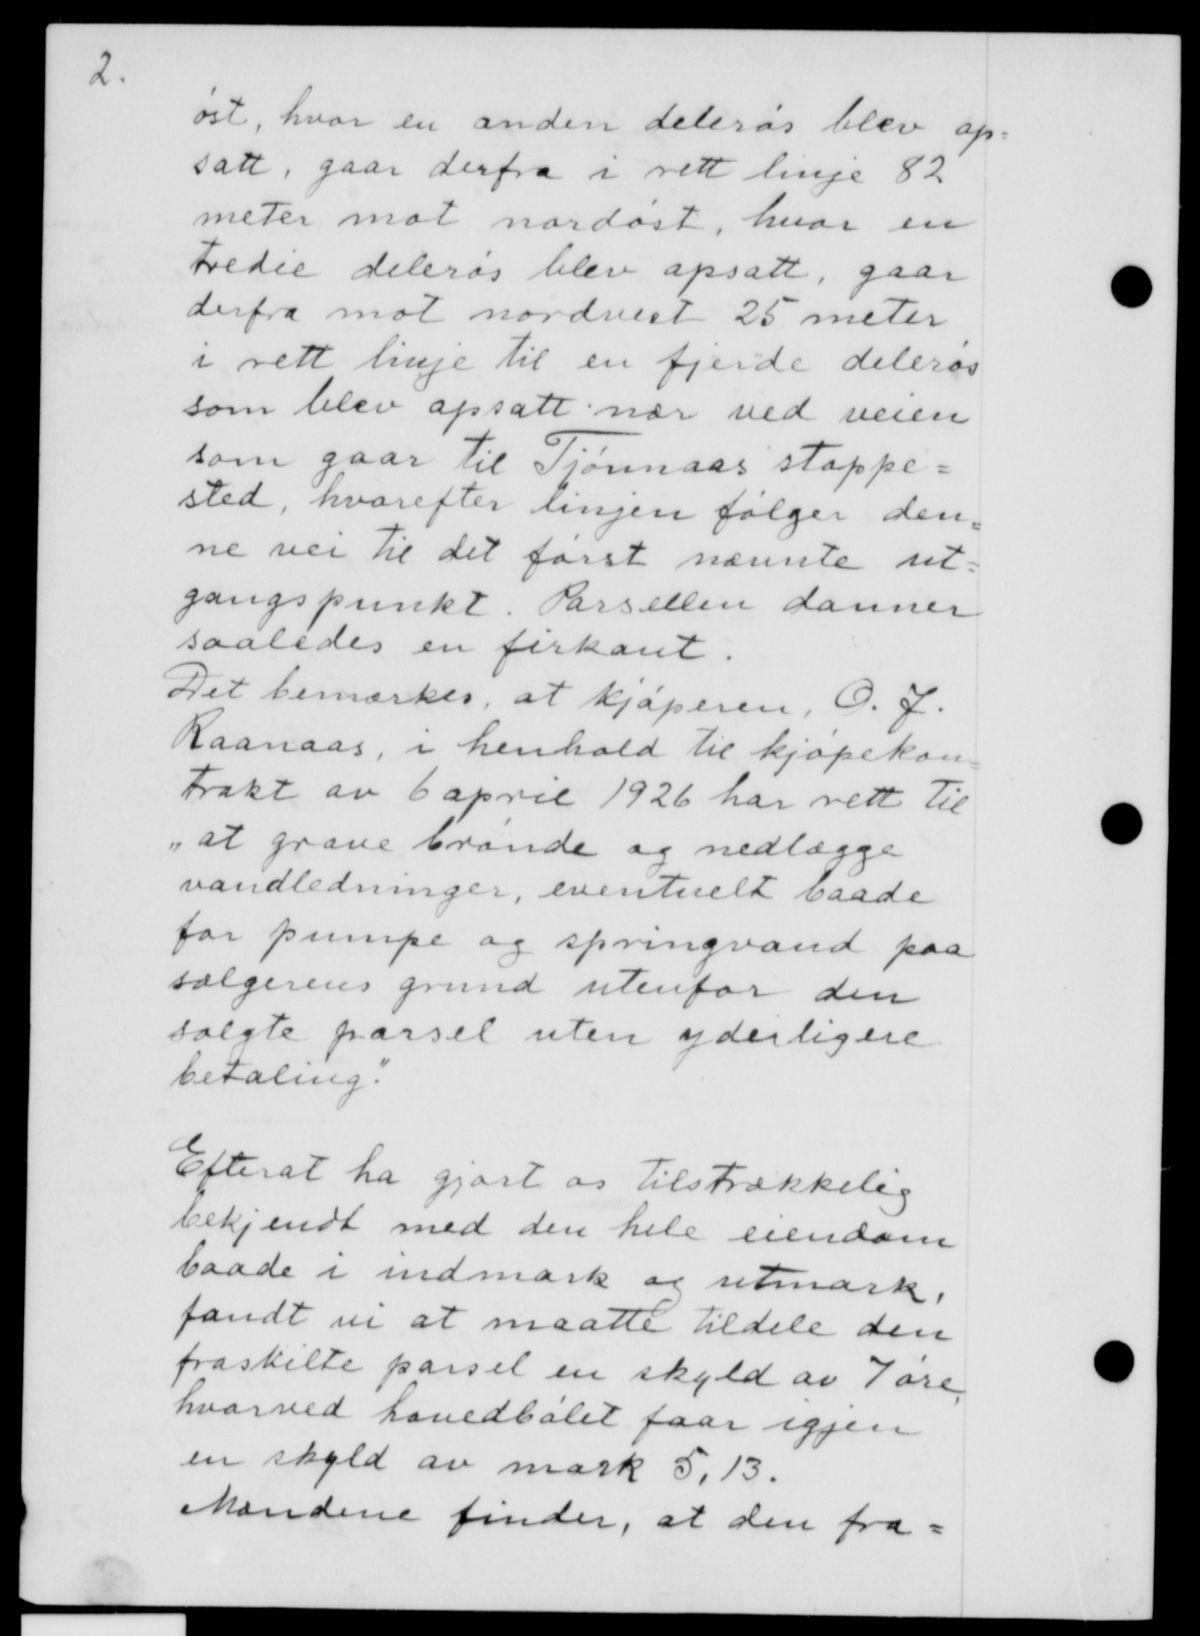 2.
öst, hvor en anden delerös blev op=
satt, gaar derfra i rett linje 82
meter mot nordöst, hvor en
tredie delerös blev opsatt, gaar
derfra mot nordvest 25 meter
i rett linje til en fjerde delerös
som blev opsatt nær ved veien
som gaar til Tjönnaas stoppe=
sted, hvorefter linjen fölger den=
ne vei til det först nævnte ut=
gangspunkt. Parsellen danner
saaledes en firkant.
Det bemerkes, at kjöperen, O. J.
Raanaas, i henhold til kjöpekon=
trakt av 6 april 1926 har rett til
„at grave brönde og nedlægge
vandledninger, eventuelt baade
for pumpe og springvand paa
sælgerens grund utenfor den
solgte parsel uten yderligere
betaling."
Efterat ha gjort os tilstrækkelig
bekjendt med den hele eiendom
baade i indmark og utmark,
fandt vi at maatte tildele den
fraskilte parsel en skyld av 7 öre,
hvorved hovedbölet faar igjen
en skyld av mark 5,13.
Mændene finder, at den fra=